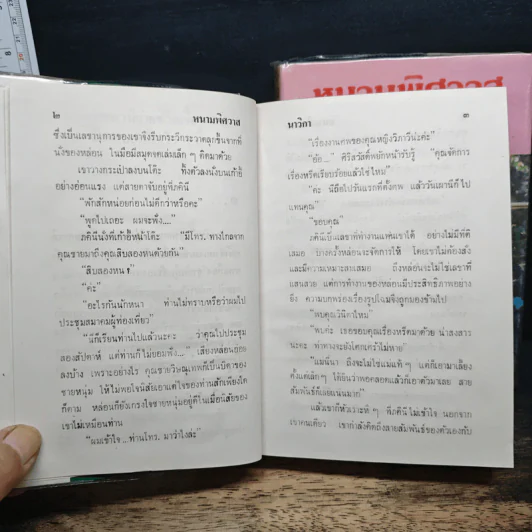 หนามพิศวาส
๒
หนามพิศวาส
ซึ่งเป็นเลขานุการของเขาจึงรีบกระวีกระวาดลุกขึ้นจากที่
นั่งของหล่อน ในมือมีสมุดจดเล่มเล็กๆ ติดมาด้วย
เขาวางกระเป๋าลงบนโต๊ะ ทิ้งตัวลงนั่งบนเก้าอี้
อย่างอ่อนแรง แต่สายตาจับอยู่ที่ภคินี
"พักสักหน่อยก่อนไม่ดีกว่าหรือคะ"
"พูดไปเถอะ ผมจะฟัง..."
ภคินีนั่งที่เก้าอี้หน้าโต๊ะ "มีโทร. ทางไกลจาก
คุณชายมาถึงคุณสิบสองหนด้วยกัน"
"สิบสองหน !"
"ค่ะ"
"อะไรกันนักหนา ท่านไม่ทราบหรือว่าผมไป
ประชุมสมาคมผู้ท่องเที่ยว"
"นีก็เรียนท่านไปแล้วนะคะ ว่าคุณไปประชุม
สองสัปดาห์ แต่ท่านก็ไม่ยอมฟัง..." เสียงหล่อนอ่อน
ลงบ้าง เพราะอย่างไร คุณชายวิษณุเทพก็เป็นบิดาของ
ชายหนุ่ม ให้ไม่พอใจนิสัยเอาแต่ใจของท่านสักเพียงใด
ก็ตาม หล่อนก็ยังเกรงใจชายหนุ่มอยู่ดีในเมื่อนิสัยของ
เขาไม่เหมือนท่าน
"ผมเข้าใจ...ท่านโทร. มาว่าไงล่ะ"
นาวิกา
๓
"เรื่องงานศพของคุณหญิงวิภาวีน่ะค่ะ"
"อ้อ..." ศิริสวัสดิ์พยักหน้ารับรู้ "คุณจัดการ
เรื่องหรีดเรียบร้อยแล้วใช่ไหม"
"ค่ะ นีถือไปวันแรกที่ตั้งศพ แล้ววันเผานีก็ไป
แทนคุณ"
"ขอบคุณ"
ภคินีเป็นเลขาที่ทำงานแทนเขาได้ อย่างไม่มีที่ติ
เสมอ บางครั้งหล่อนจะจัดการให้ โดยเขาไม่ต้องสั่ง
และมีความเหมาะสมเสมอ ถึงหล่อนจะไม่ใช่เลขาที่
แสนสวย แต่การทำงานของหล่อนมีประสิทธิภาพอย่าง
ยิ่ง ความบกพร่องเรื่องรูปโฉมจึงถูกมองข้ามไป
"พบคุณวนิกาไหม"
"พบค่ะ เธอขอบคุณเรื่องหรีดมาด้วย น่าสงสาร
นะคะ ท่าทางจะยังโศกเศร้าไม่หาย"
"แม่นี่นา ถึงจะไม่ใช่แม่แท้ๆ แต่ก็เอามาเลี้ยง
ตั้งแต่เล็กๆ ได้ยินว่าพอคลอดแล้วก็เอาตัวมาเลย สาย
สัมพันธ์ก็เลยแน่นมาก"
แล้วเขาก็หัวเราะหึๆ พึ่งคินีไม่เข้าใจ นอกจาก
เขาคนเดียว เขากำลังคิดถึงสายสัมพันธ์ของตัวเองกับ